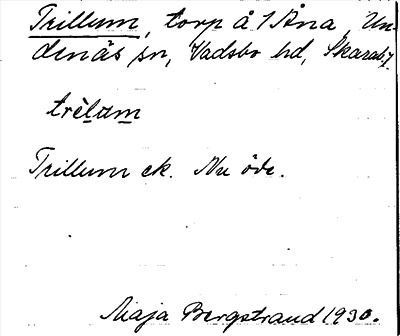 Trillum, torp å 1 Åna, Un-
denäs sn, Vadsbo hd, Skarab. l.
trèlam
Trillum ek. Nu öde.
Maja Bergstrand 1930.